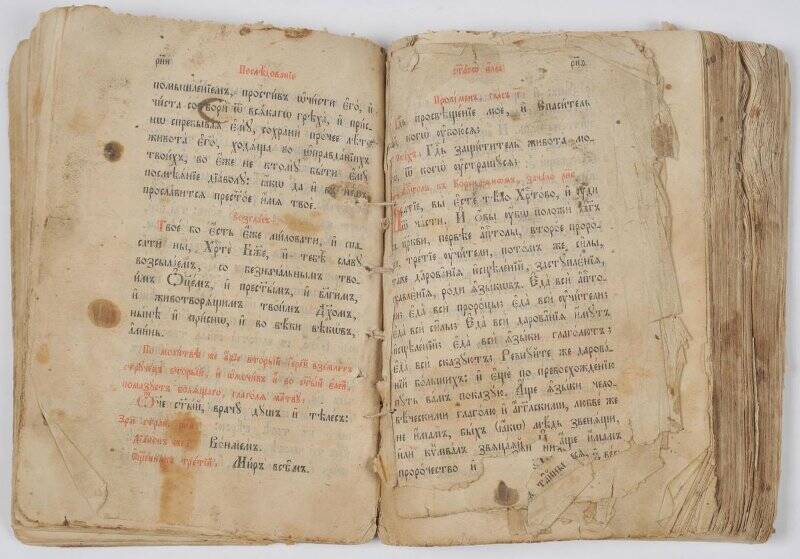 рни
Послѣдованїе
помышленїемъ, прости́въ ѡ҆чи́сти є҆го̀, и҆
чи́ста сотворѝ ѿ всѧ́кагѡ грѣха̀, и҆ при́с-
нѡ спребыва́ѧ є҆мꙋ̀, сохранѝ про́чее лѣ́тъ
живота̀ є҆гѡ̀, ходѧ́ща во ѡ҆правда́нїихъ
твои́хъ, во є҆́же не ктомꙋ̀ бы́ти є҆мꙋ̀
посмѣѧ́нїе дїа́волꙋ: ꙗ҆́кѡ да и҆ въ не́мъ
просла́витсѧ прест҃о́е и҆́мѧ твоѐ.
Возгла́съ:
Твое́ бо є҆́сть є҆́же ми́ловати, и҆ спа-
са́ти ны̀, Хрⷭ҇тѐ Бж҃е, и҆ тебѣ̀ сла́вꙋ
возсыла́емъ, со безнача́льнымъ тво-
и́мъ Ѻ҆ц҃е́мъ, и҆ прест҃ы́мъ, и҆ бл҃ги́мъ,
и҆ животворѧ́щимъ твои́мъ Дх҃омъ,
ны́нѣ и҆ при́снѡ, и҆ во вѣ́ки вѣкѡ́въ,
а҆ми́нь.
По мл҃твѣ же а҆́бїе вторы́й і҆ере́й взе́млетъ
стрꙋ́чецъ вторы́й, и҆ ѡ҆мочи́въ є҆го̀ во ст҃ы́й є҆ле́й,
помазꙋ́етъ болѧ́щаго, глаго́лѧ мл҃твꙋ:
Ѻ҆́ч҃е ст҃ы́й, врачꙋ̀ дꙋ́шъ и҆ тѣле́съ:
Во́нмемъ.
тре́тїй: Ми́ръ всѣ̑мъ.
ст҃а́гѡ є҆ле́а
рн҃ѳ
Проки́менъ, гла́съ
Гдⷭ҇ь просвѣще́нїе моѐ, и҆ Спаси́тель
когѡ̀ ᲂу҆бою́сѧ:
Сті́хъ: Гдⷭ҇ь защи́титель живота̀ мо-
ѿ когѡ̀ ᲂу҆страшꙋ́сѧ:
къ Корі́нѳѧнѡмъ, зача́ло рн҃г.
Бра́тїе, вы̀ є҆стѐ тѣ́ло Хрⷭ҇то́во, и҆ ᲂу҆́ди
ѿ ча́сти. И҆ ѻ҆́вы ᲂу҆́бѡ положѝ бг҃ъ
цр҃кви, пе́рвѣе а҆пⷭ҇лы, второ́е проро́-
тре́тїе ᲂу҆чи́тели, пото́мъ же си̑лы,
та́же дарова̑нїѧ и҆сцѣле́нїй, заступлє́нїѧ,
правлє́нїѧ, ро́ди ꙗ҆зы́кѡвъ. Є҆да̀ всѝ а҆пⷭ҇то-
ли; є҆да̀ всѝ проро́цы; є҆да̀ всѝ ᲂу҆чи́тели;
є҆да̀ всѝ си̑лы; Є҆да̀ всѝ дарова̑нїѧ и҆́мꙋтъ
и҆сцѣле́нїй; є҆да̀ всѝ ꙗ҆зы̑ки глаго́лютъ;
є҆да̀ всѝ сказꙋ́ютъ; Ревнꙋ́йте же дарова́-
нїй бо́льшихъ: и҆ є҆щѐ по превосхожде́нїю
пꙋ́ть ва́мъ показꙋ́ю. А҆́ще ꙗ҆зы̑ки чело-
вѣ́ческими глаго́лю и҆ а҆́гг҃льскими, любве́ же
не и҆́мамъ, бы́хъ ꙗ҆́кѡ мѣ́дь звенѧ́щи,
и҆лѝ кѷмва́лъ звѧца́ѧй. и҆ а҆́ще и҆́мамъ
проро́чество и҆
та́йны